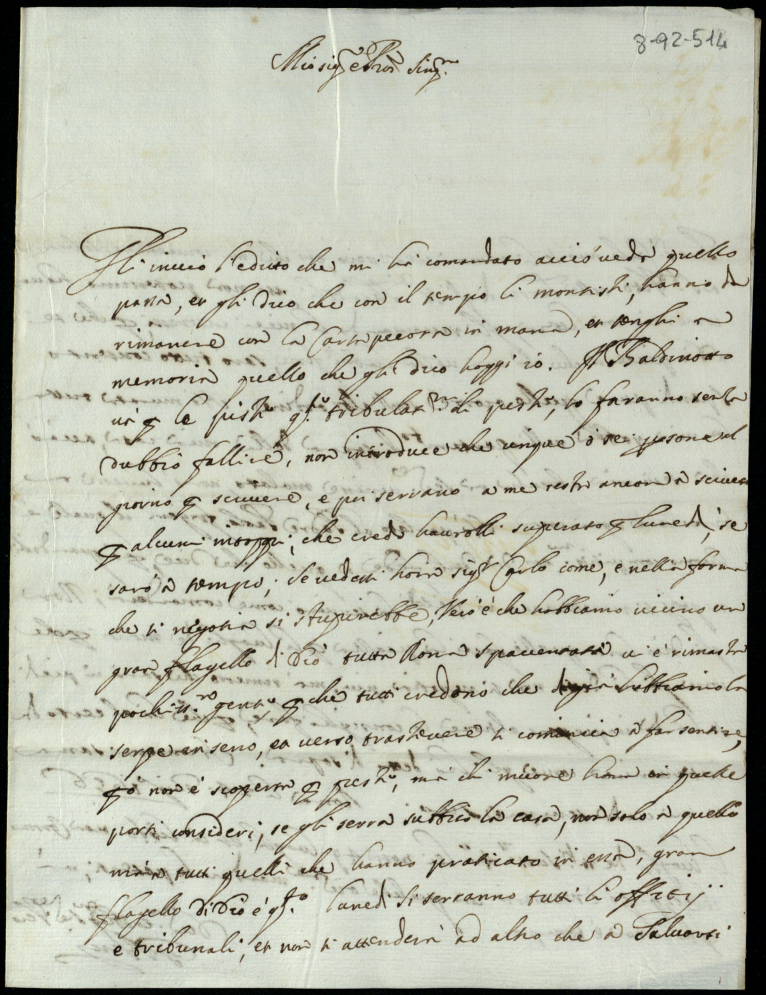 8-92-514
Mio sig.re e Pron. Sing.mo
Gli invio l'editto che mi hà comandato acciò veda quello
passa, et gli dico che con il tempo li montisti, hanno da
rimanere con la Carta pecora in mano, et tenghi a
memoria quello che gli dico hoggi io. Il Baldinotto
ꝑ le q.sto li faranno senza
dubbio fallire, non introduce che cinque ò sei ꝑsone il
giorno ꝑ scrivere, e poi serrano a me resta ancora à scrivere
ꝑ alcuni che credo haverli superato ꝑ lunedì, se
sarò à tempo, se vedesse hora sig.r Carlo come, e nella forma
che si negotia si stupirebbe, Vero è che habbiamo vicino un
gran flagello di Dio tutta Roma spaventata vi è rimasta
pochiss.ma gente ꝑche tutti credono che digià habbiamo la
serpe in seno, et verso trastevere si comincia à far sentire,
ꝑò non è scoperta ꝑ peste, mà chi muore hora in quelle
parti consideri, se gli serra subbito la casa, non solo à quello
mà à tutti quelli che hanno praticato in essa, gran
flagello di Dio è q.sto lunedì si serranno tutti li offitij
e tribunali, et non si attenderà ad altro che à Salvarsi